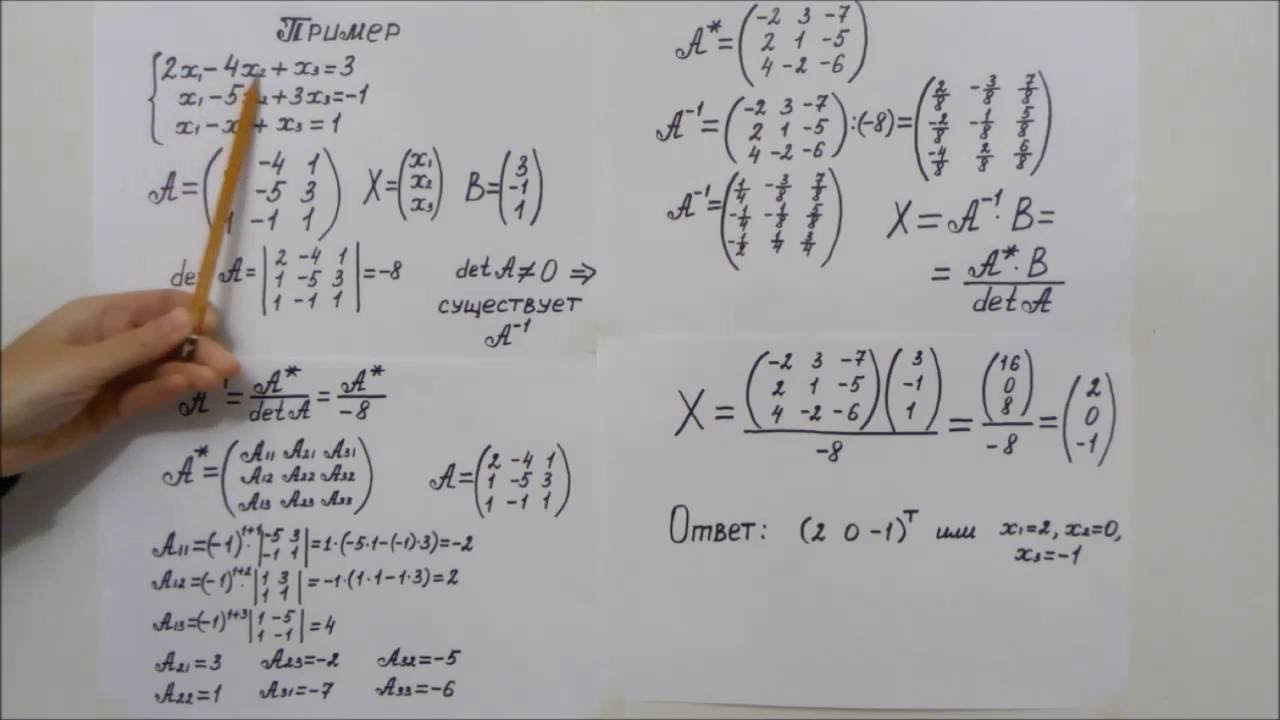 Пример
2x₁-4x₂+x₃=3
x₁-5x₂+3x₃=-1
x₁-x + x₃=1
A=( -4 1
-5 3
1 -1 1) X=(x₁
x₂
x₃) B=(3
-1
1)
det A=|2 -4 1
1 -5 3
1 -1 1|=-8 det A≠0 ⇒
существует
A⁻¹
A⁻¹=A*/det A=A*/-8
A*=(A₁₁ A₂₁ A₃₁
A₁₂ A₂₂ A₃₂
A₁₃ A₂₃ A₃₃) A=(2 -4 1
1 -5 3
1 -1 1)
A₁₁=(-1)¹⁺¹·|-5 3
-1 1|=1·(-5·1-(-1)·3)=-2
A₁₂=(-1)¹⁺²·|1 3
1 1|=-1·(1·1-1·3)=2
A₁₃=(-1)¹⁺³|1 -5
1 -1|=4
A₂₁=3 A₂₃=-2 A₃₂=-5
A₂₂=1 A₃₁=-7 A₃₃=-6
A*=(-2 3 -7
2 1 -5
4 -2 -6)
A⁻¹=(-2 3 -7
2 1 -5
4 -2 -6):(-8)=(2/8 -3/8 7/8
-2/8 -1/8 5/8
-4/8 2/8 6/8)
A⁻¹=(1/4 -3/8 7/8
-1/4 -1/8 5/8
-1/2 1/4 3/4) X=A⁻¹·B=
=A*·B/det A
X=(-2 3 -7
2 1 -5
4 -2 -6)(3
-1
1)/-8=(16
0
8)/-8=(2
0
-1)
Ответ: (2 0 -1)ᵀ или x₁=2, x₂=0,
x₃=-1